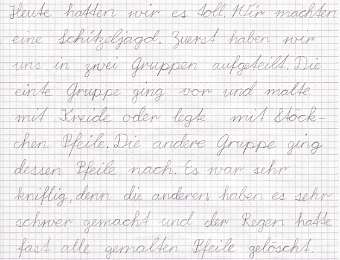 Heute hatten wir es toll. Wir machten
eine Schitzeljagd. Zuerst haben wir
uns in zwei Gruppen aufgeteilt. Die
einte Gruppe ging vor und malte
mit Kreide oder legte mit Stöck-
chen Pfeile. Die andere Gruppe ging
dessen Pfeile nach. Es war sehr
kniftlig, denn die anderen haben es sehr
schwer gemacht und der Regen hatte
fast alle gemalten Pfeile gelöscht.